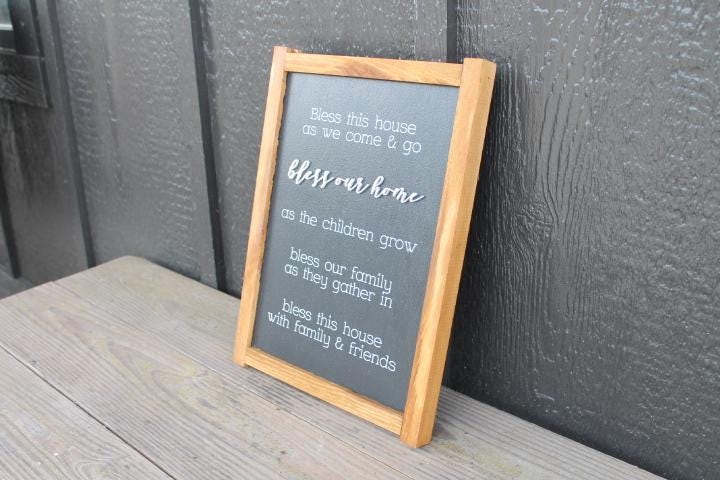 Bless this house
as we come & go
bless our home
as the children grow
bless our family
as they gather in
bless this house
with family & friends